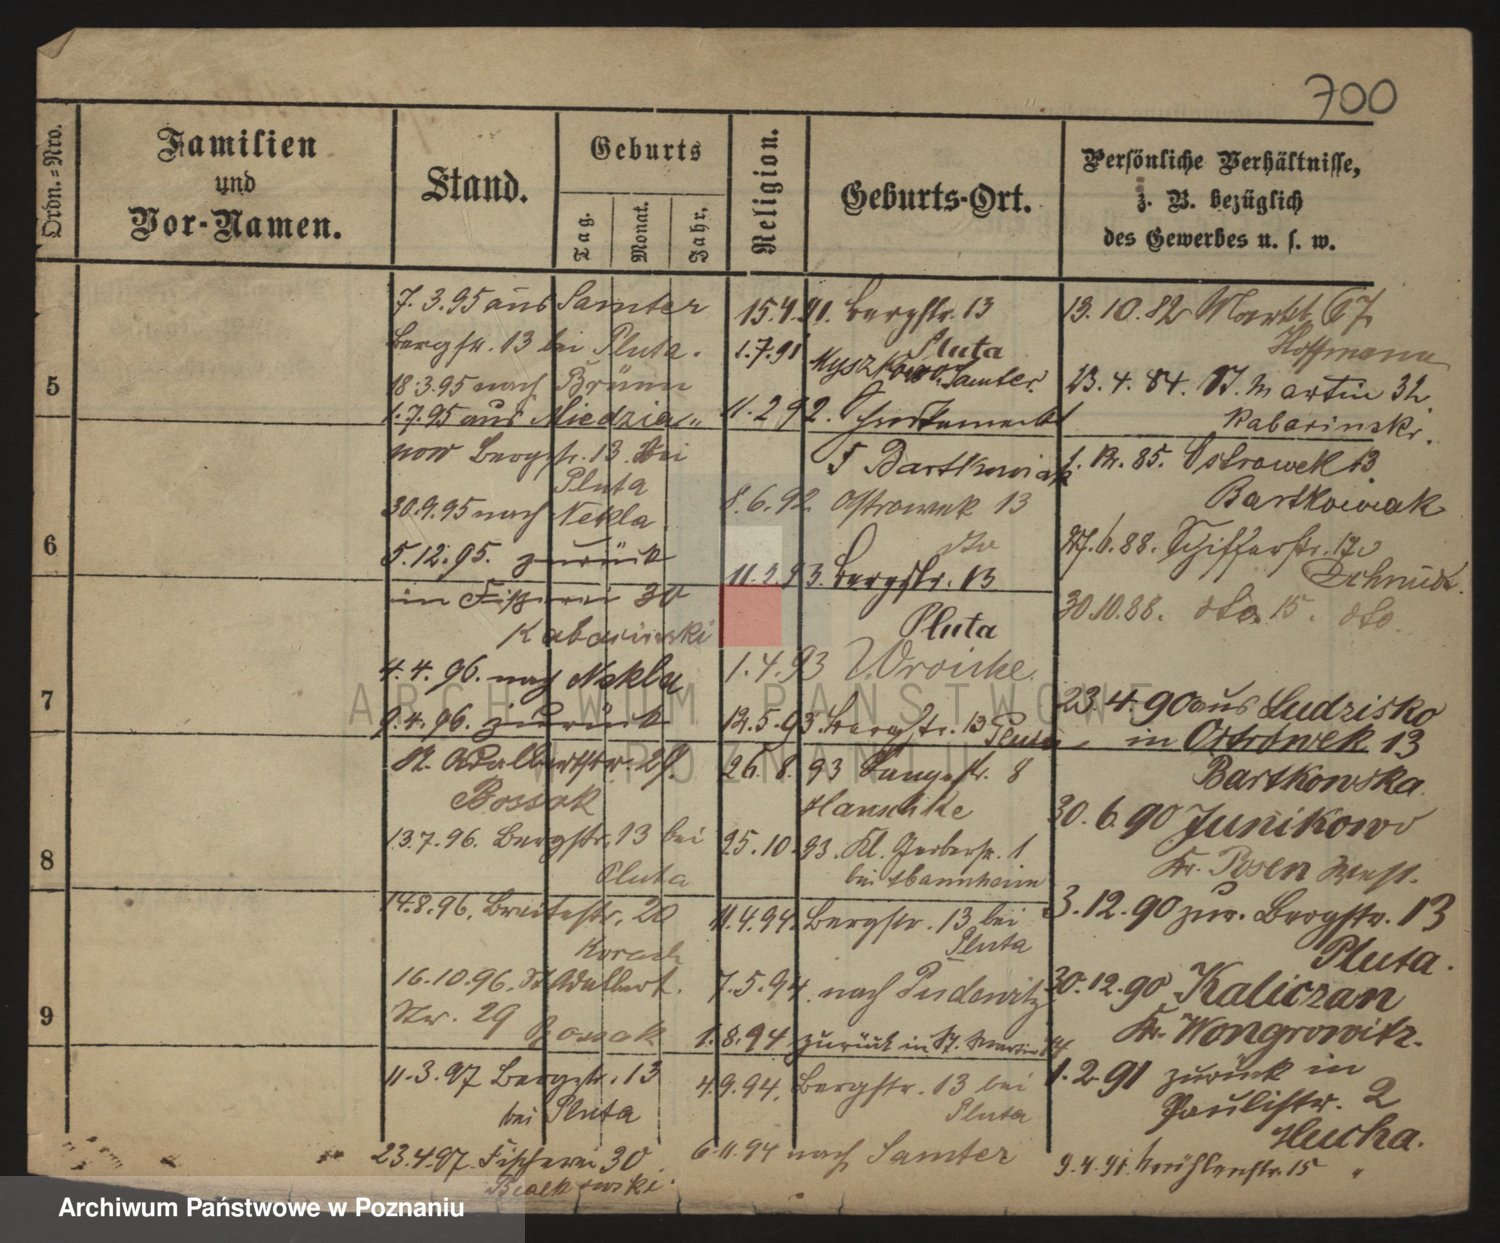 700
Ordn.=Nro.
Familien
und
Vor-Namen.
Stand.
Geburts
Tag.
Monat.
Jahr.
Religion.
Geburts-Ort.
Persönliche Verhältnisse,
z. B. bezüglich
des Gewerbes u. s. w.
5
6
7
8
9
7.3.95 aus Samter
Bergstr. 13 bei Pluta.
18.3.95 nach Brünn
1.7.95 aus Miedzia-
now Bergstr. 13 bei
Pluta
30.9.95 nach Nekla
5.12.95. zurück
in Fischerei 30
Kabacinski
4.4.96. nach Nekla
9.4.96. zurück
St. Adalbertstr. 29.
Bossak
13.7.96. Bergstr. 13 bei
Pluta
14.8.96. Breitestr. 20
Korach
16.10.96. St Adalbert.
Nr. 29 Bossak
11.3.97 Bergstr. 13
bei Pluta
23.4.97. Fischerei 30.
Bialkowski.
15.4.91. Bergstr. 13
Pluta
1.7.91 Myszkowo Samter.
11.2.92.
F Bartkowiak
8.6.92 Ostrowek 13
dto
11.2.93. Bergstr. 13
Pluta
1.4.93
12.5.93. Bergstr. 13 Pluta
26.8.93 Langestr. 8
Hanschke
25.10.93. Kl. Gerberstr. 1
bei Mannheim
11.4.94. Bergstr. 13 bei
Pluta
7.5.94. nach Pudewitz
1.8.94. zurück in St. Martin
4.9.94. Bergstr. 13 bei
Pluta
6.11.94 nach Samter
13.10.82 Markt 67
Hoffmann
23.4.84. St. Martin 32.
Kabacinski.
1.12.85. Ostrowek 13
Bartkowiak
27.6.88. Schifferstr. 17
Schmidt.
30.10.88. dto. 15. dto.
23.4.90 aus Ludzisko
in Ostrowek 13
Bartkowska.
30.6.90 Junikowo
Kr. Posen West.
3.12.90 zur. Bergstr. 13
Pluta.
30.12.90 Kaliczan
Kr. Wongrowitz.
1.2.91 zurück in
Paulistr. 2
Hucha.
9.4.91. Mühlenstr. 15 "
ARCHIWUM PAŃSTWOWE
W POZNANIU
Archiwum Państwowe w Poznaniu